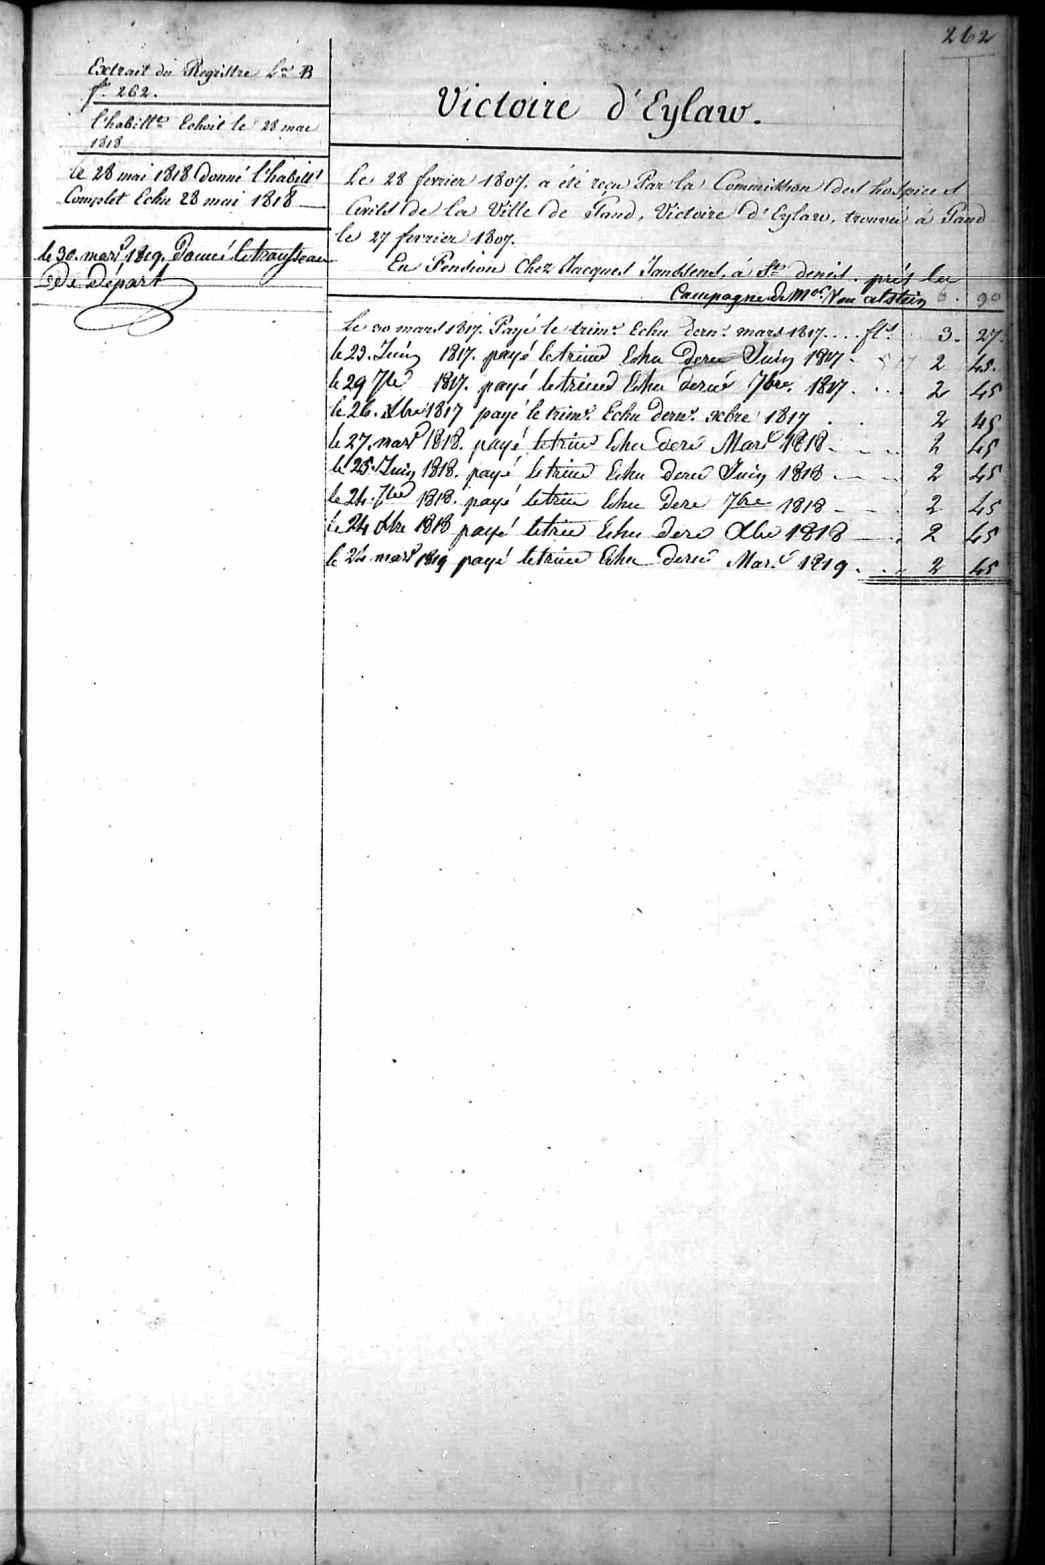 262
Extrait du Registre L.ra B
f.º 262.
l'habill.t Echoit le 28 mai
1818
le 28 mai 1818 donné l'habill.t
Complet Echu 28 mai 1818
le 30. mars 1819. Donné le trousseau
De Départ
Victoire d'Eylaw.
Le 28 fevrier 1807. a été reçu Par la Commission des hospices
Civils de la Ville de Gand, Victoire d'Eylaw, trouvée à Gand
le 27 fevrier 1807.
En Pension Chez Jacques Janssens, à S.t denis. près la
Campagne de M.r Van alstein 6. 90
Le 30 mars 1817. Payé le trim.e Echu dern.r mars 1817.... fls. 3. 27.
le 23. Juin 1817. payé le trime Echu dere Juin 1817. 2 45.
le 29 7bre 1817. payé le trime Echu derné 7bre. 1817. ... 2 45
le 26. Xbre 1817 payé le trim.e Echu dern.r xbre 1817 . . 2 45
le 27. mars 1818. payé le trim Echu dere Mars 1818. - .. 2 45
le 25. Juin 1818. payé le trime Echu dere Juin 1818 - ... 2 45
le 24. 7bre 1818. payé le trim Echu Dere 7bre 1818 - - . 2 45
le 24 Xbre 1818 payé le trim Echu dere Xbre 1818 - . 2 45
le 24. mars 1819 payé le trime Echu derne Mars 1819. . . . 2 45